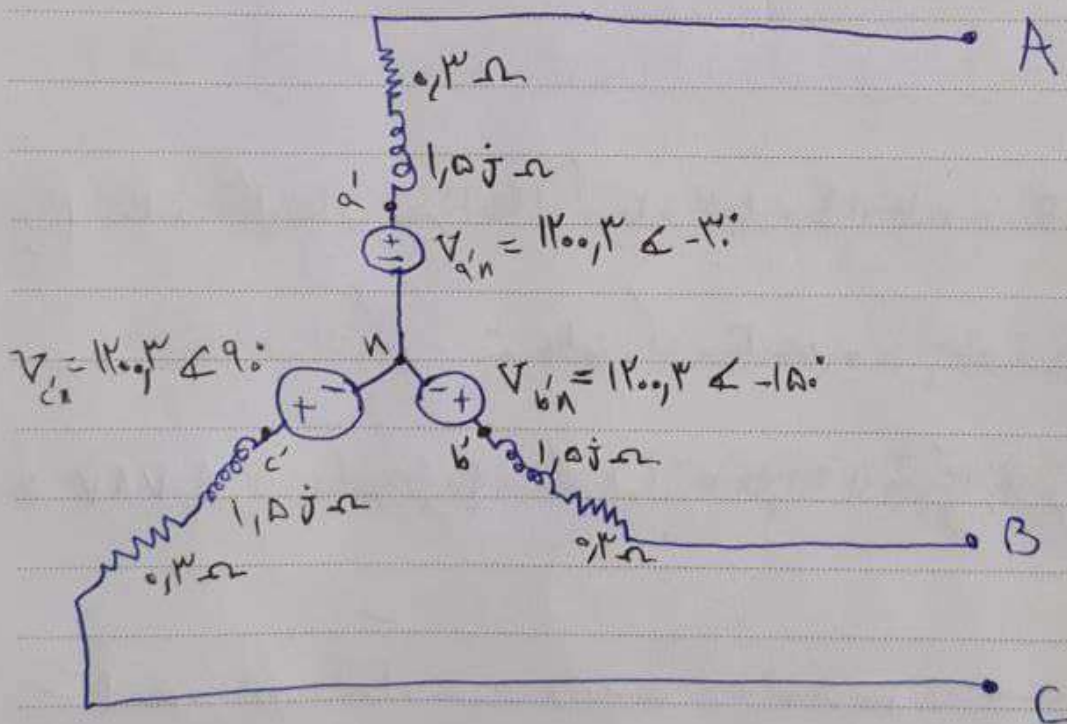 A
۰٫۳ Ω
۱٫۵ j Ω
a'
V_{a'n} = ۱۲۰۰٫۳ ∡ -۳۰°
n
V_{c'n} = ۱۲۰۰٫۳ ∡ ۹۰°
V_{b'n} = ۱۲۰۰٫۳ ∡ -۱۵۰°
+ -
- +
c'
b'
۱٫۵ j Ω
۱٫۵ j Ω
۰٫۳ Ω
۰٫۳ Ω
B
C